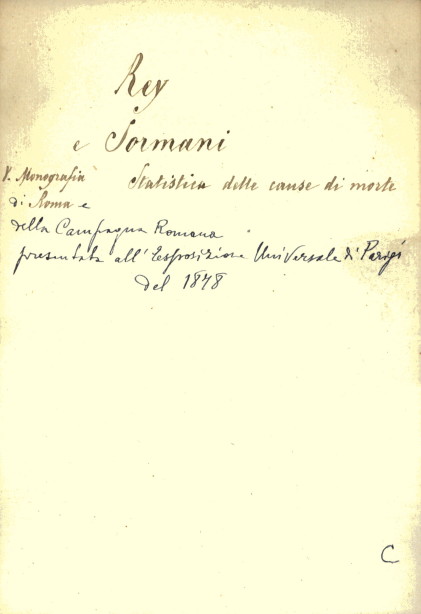 Rey
e Sormani
V. Monografia Statistica delle cause di morte
di Roma e
della Campagna Romana
presentata all'Esposizione Universale di Parigi
del 1878
C